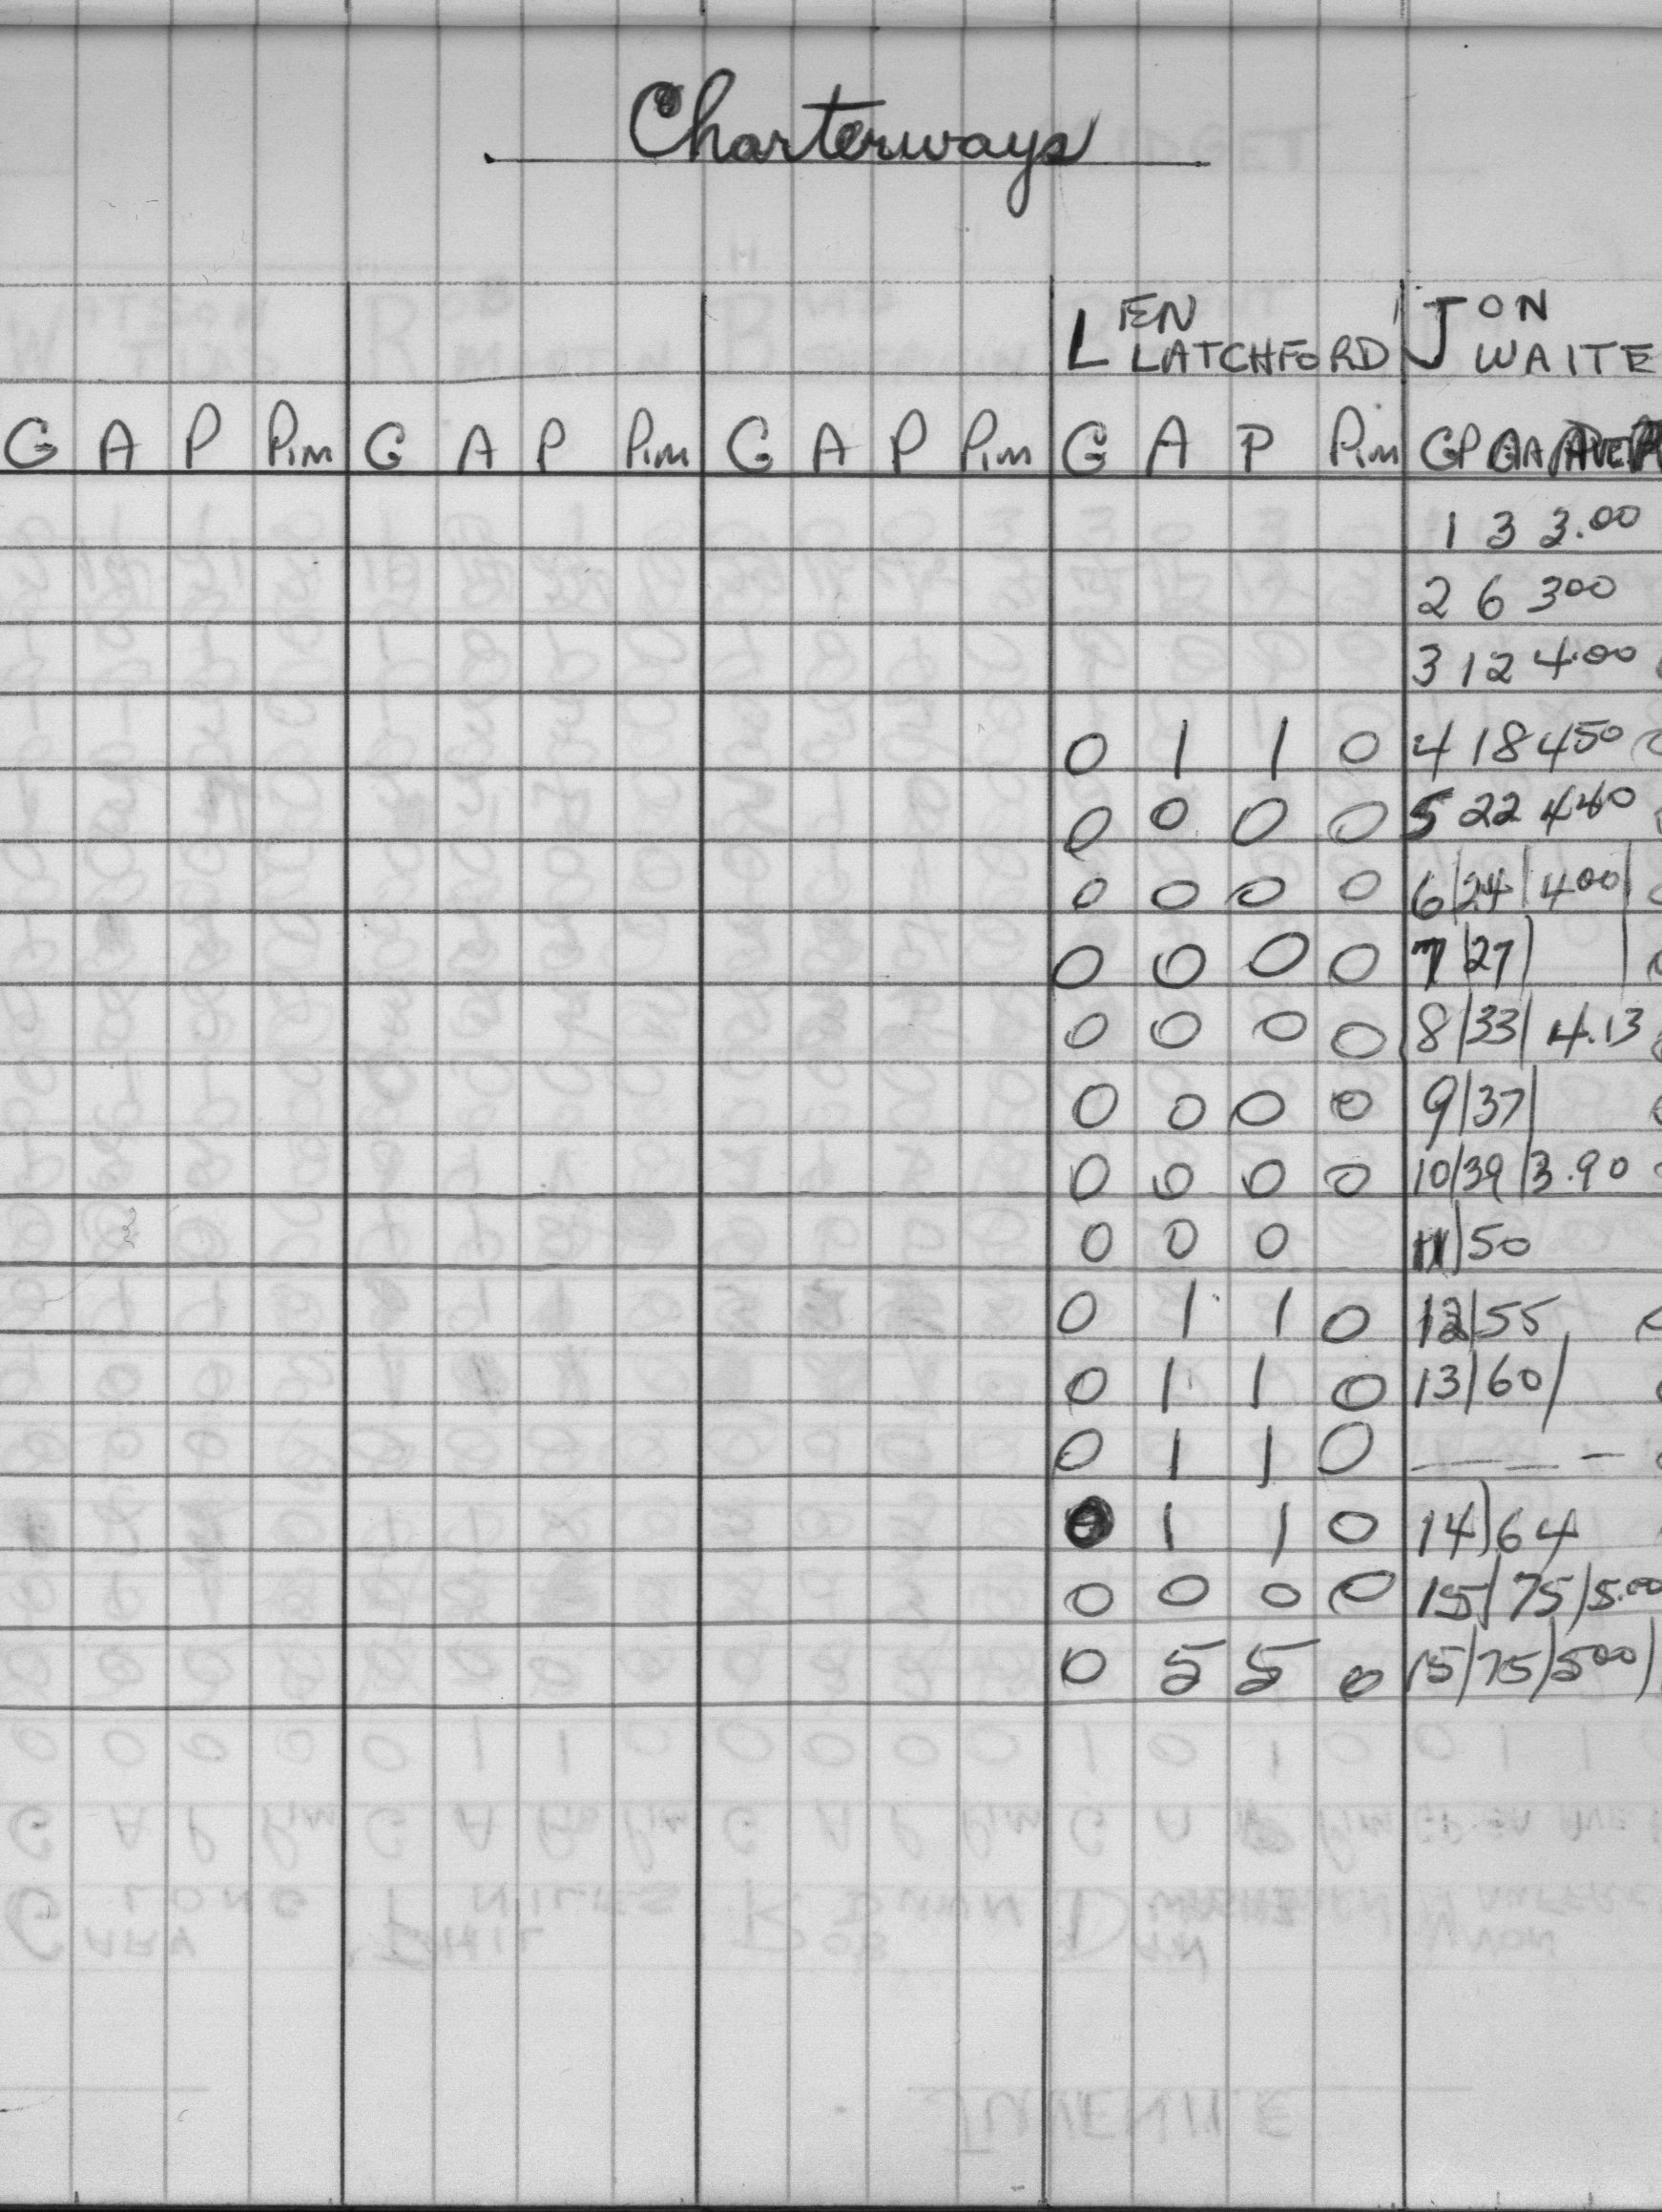 Charterways
LEN LATCHFORD JON WAITE
G A P Pim G A P Pim G A P Pim G A P Pim GP GA AVER
1 3 3.00
2 6 300
3 12 4.00
0 1 1 0 4 18 450
0 0 0 0 5 22 440
0 0 0 0 6/24/400/
0 0 0 0 7/27/
0 0 0 0 8/33/4.13
0 0 0 0 9/37/
0 0 0 0 10/39/3.90
0 0 0 11/50
0 1 1 0 12/55
0 1 1 0 13/60/
0 1 1 0 — — –
0 1 1 0 14/64
0 0 0 0 15/75/5.00
0 5 5 0 15/75/500/